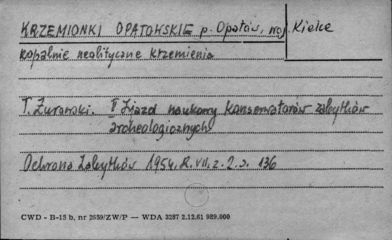 KRZEMIONKI OPATOWSKIE p. Opatów, woj. Kielce
kopalnie neolityczne krzemienia
T. Żurowski. II Zjazd naukowy Konserwatorów zabytków
archeologicznych
Ochrona Zabytków 1954. R. VII. z. 2. s. 136
CWD - B-15 b, nr 2659/ZW/P — WDA 3287 2.12.61 989.000